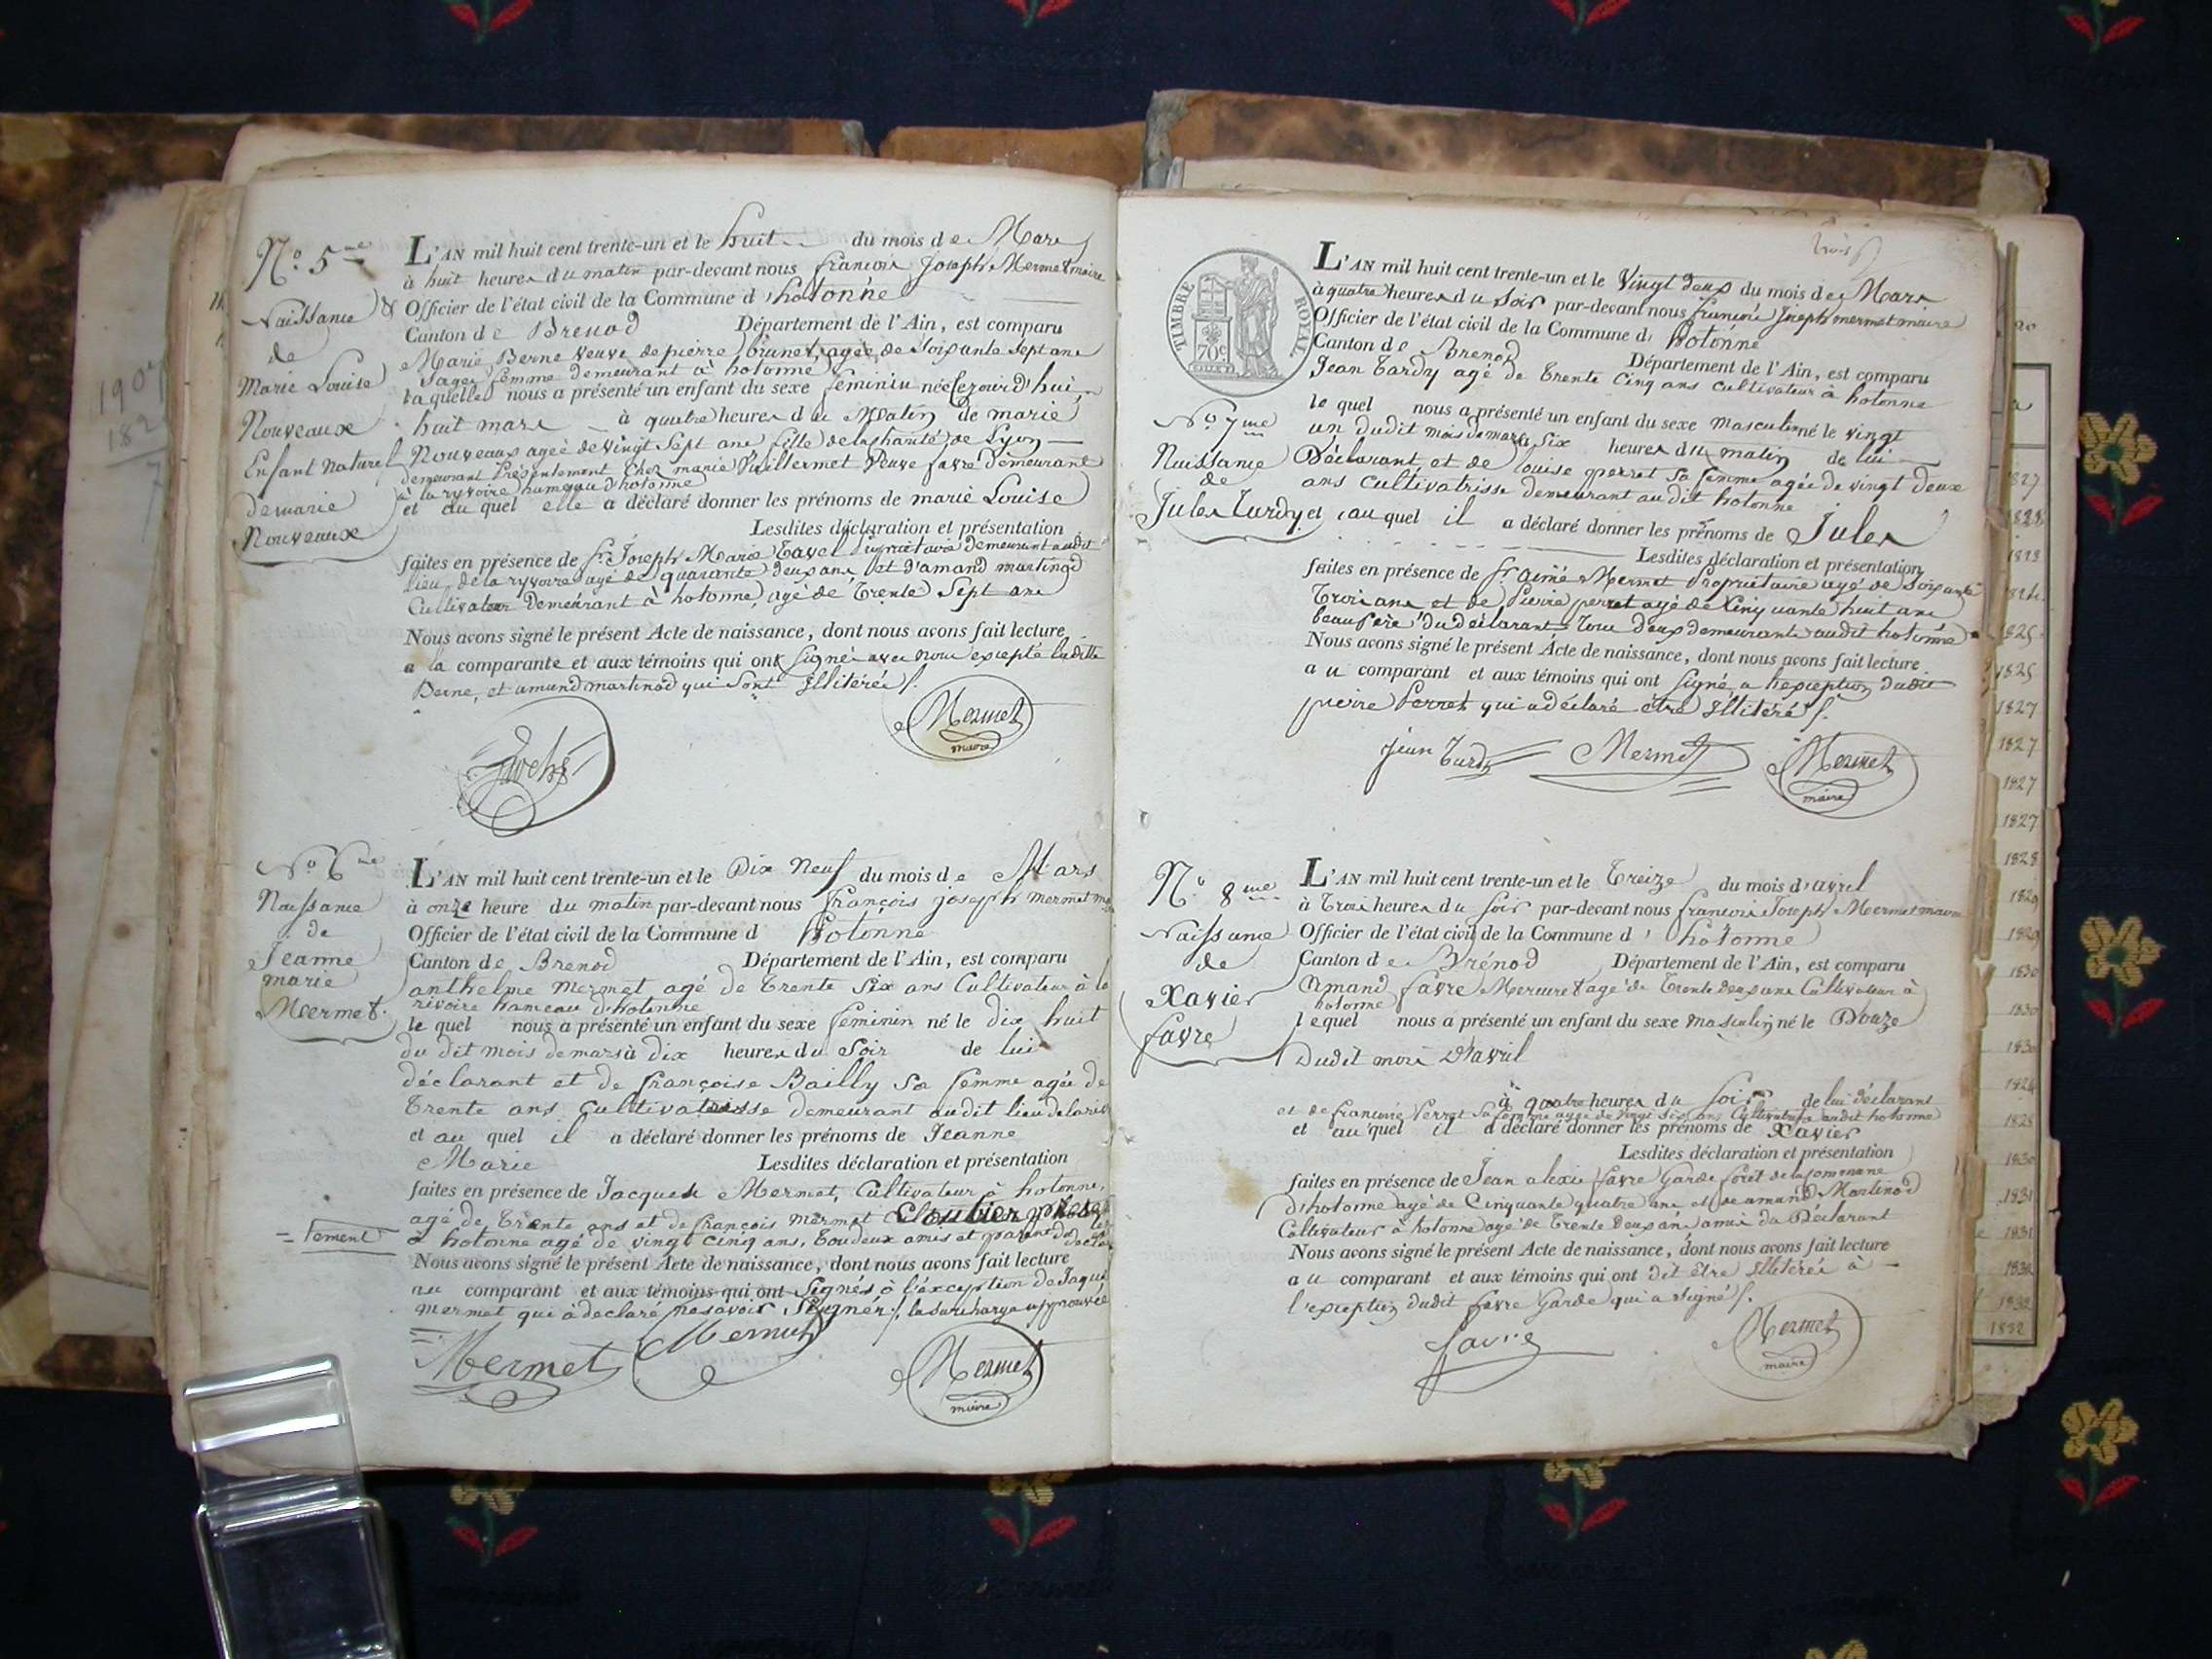 N.o 5me
Naissance
de
Marie Louise
Nouveaux
Enfant Naturel
de marie
Nouveaux
L'AN mil huit cent trente-un et le huit du mois de Mars
à huit heures du matin par-devant nous françois Joseph Mermet maire
Officier de l'état civil de la Commune d'hotonne
Canton de Brenod Département de l'Ain, est comparu
Marie Berne veuve de pierre brunet, agée de soixante sept ans
sage femme demeurant à hotonne
laquelle nous a présenté un enfant du sexe feminin née cejourd'hui
huit mars à quatre heures du Matin de marie
Nouveaux agée de vingt sept ans fille de la charité de Lyon
demeurant Présentement chez marie Vuillermet Veuve favre demeurant
à la ryvoire hameau d'hotonne
et au quel elle a déclaré donner les prénoms de marie Louise
Lesdites déclaration et présentation
faites en présence de Sr. Joseph Marie Tavel propriétaire demeurant audit
lieu de la ryvoire agé de quarante deux ans et d'amand martinod
Cultivateur demeurant à hotonne, agé de trente sept ans
Nous avons signé le présent Acte de naissance, dont nous avons fait lecture
a la comparante et aux témoins qui ont signé avec nous excepté ladite
Berne, et amand martinod qui sont illitérés
Mermet
maire
No 6me
Naissance
de
Jeanne
marie
Mermet.
L'AN mil huit cent trente-un et le Dix Neuf du mois de Mars
à onze heure du matin par-devant nous françois joseph mermet
Officier de l'état civil de la Commune d hotonne
Canton de Brenod Département de l'Ain, est comparu
anthelme Mermet agé de trente six ans Cultivateur à la
rivoire hameau d'hotonne
le quel nous a présenté un enfant du sexe feminin né le dix huit
du dit mois de mars à dix heures du Soir de lui
déclarant et de françoise Bailly sa femme agée de
trente ans cultivatrisse demeurant audit lieu de la
et au quel il a déclaré donner les prénoms de Jeanne
Marie Lesdites déclaration et présentation
faites en présence de Jacques Mermet, Cultivateur à hotonne,
agé de trente ans et de françois mermet Cloutier
= tement à hotonne agé de vingt cinq ans, tou deux amis et
Nous avons signé le présent Acte de naissance, dont nous avons fait lecture
au comparant et aux témoins qui ont Signés à l'éxception de Jaque
Mermet qui à déclaré ne savoir Signer /. la surcharge approuvée
Mermet Mermet Mermet
maire
trois
TIMBRE ROYAL
70c
No 7me
Naissance
de
Jules Tardy
L'AN mil huit cent trente-un et le Vingt deux du mois de Mars
à quatre heures du soir par-devant nous françois Joseph mermet maire
Officier de l'état civil de la Commune d' hotonne
Canton de Brenod Département de l'Ain, est comparu
Jean Tardy agé de trente cinq ans cultivateur à hotonne
le quel nous a présenté un enfant du sexe masculin né le vingt
un dudit mois de mars six heures du matin de lui
Déclarant et de louise perret sa femme agée de vingt deux
ans cultivatrisse demeurant au dit hotonne
et au quel il a déclaré donner les prénoms de Jules
Lesdites déclaration et présentation
faites en présence de Sr aimé Mermet Propriétaire agé de soixante
trois ans et de Pierre perret agé de Cinquante huit ans
beaupère du declarant tous deux demeurants audit hotonne
Nous avons signé le présent Acte de naissance, dont nous avons fait lecture
au comparant et aux témoins qui ont signé, a l'exception dudit
pierre Perret qui a déclaré être illitéré /.
jean Tardy Mermet Mermet
maire
N.o 8me
Naissance
de
Xavier
favre
L'AN mil huit cent trente-un et le treize du mois d'avril
à trois heures du soir par-devant nous françois Joseph Mermet maire
Officier de l'état civil de la Commune d' hotonne
Canton de Brénod Département de l'Ain, est comparu
Amand favre Mercuret agé de trente deux ans Cultivateur à
hotonne
lequel nous a présenté un enfant du sexe masculin né le Douze
Dudit mois D'avril
à quatre heures du soir de lui déclarant
et de françoise Perret sa femme agée de vingt six ans Cultivatrisse audit hotonne
et au quel il a déclaré donner les prénoms de Xavier
Lesdites déclaration et présentation
faites en présence de Jean alexis favre Garde forêt de la commune
D'hotonne agé de Cinquante quatre ans et de amand Martinod
Cultivateur à hotonne agé de trente deux ans amis du Déclarant
Nous avons signé le présent Acte de naissance, dont nous avons fait lecture
au comparant et aux témoins qui ont dit être illitérés à
l'exception dudit favre Garde qui a signé /.
favre Mermet
maire
1827
1828
1825
1825
1827
1827
1827
1827
1828
1829
1829
1830
1830
1830
1830
1831
1831
1832
1832